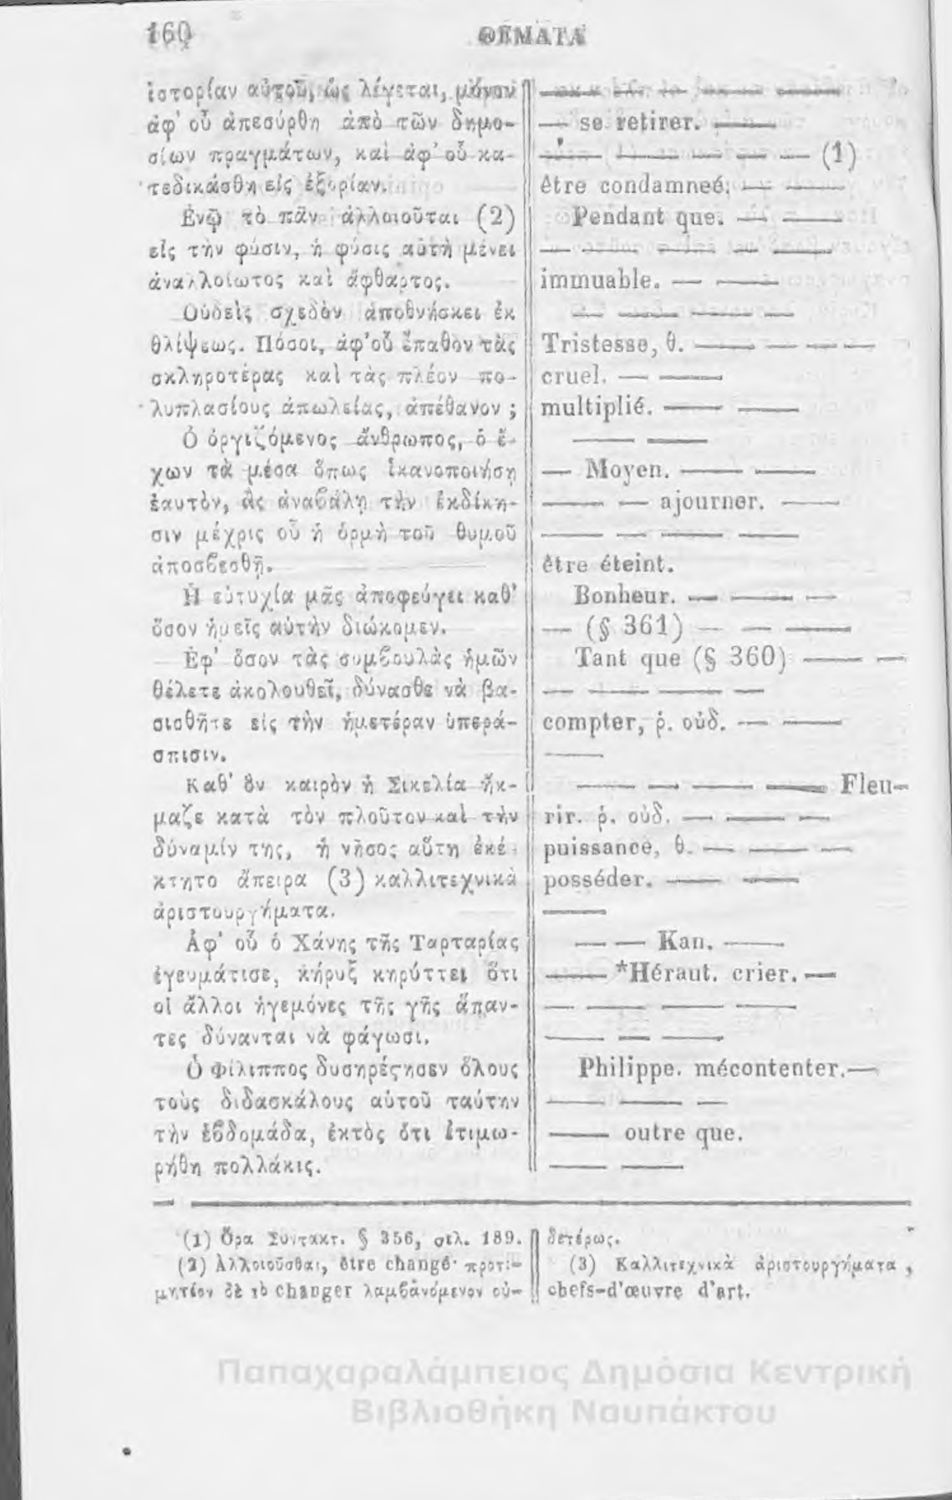 160
ΘΕΜΑΤΑ
ἱστορίαν αὐτοῦ, ὡς λέγεται, μόνον
ἀφ' οὗ ἀπεσύρθη ἀπὸ τῶν δημο-
σίων πραγμάτων, καὶ ἀφ' οὗ κα-
τεδικάσθη εἰς ἐξορίαν.
Ἐνῷ τὸ πᾶν ἀλλοιοῦται (2)
εἰς τὴν φύσιν, ἡ φύσις αὐτὴ μένει
ἀναλλοίωτος καὶ ἄφθαρτος.
Οὐδεὶς σχεδὸν ἀποθνήσκει ἐκ
θλίψεως. Πόσοι, ἀφ' οὗ ἔπαθον τὰς
σκληροτέρας καὶ τὰς πλέον πο-
λυπλασίους ἀπωλείας, ἀπέθανον ;
Ὁ ὀργιζόμενος ἄνθρωπος, ὁ ἔ-
χων τὰ μέσα ὅπως ἱκανοποιήσῃ
ἑαυτὸν, ἂς ἀναβάλῃ τὴν ἐκδίκη-
σιν μέχρις οὗ ἡ ὁρμὴ τοῦ θυμοῦ
ἀποσβεσθῇ.
Ἡ εὐτυχία μᾶς ἀποφεύγει καθ'
ὅσον ἡμεῖς αὐτὴν διώκομεν.
Ἐφ' ὅσον τὰς συμβουλὰς ἡμῶν
θέλετε ἀκολουθεῖ, δύνασθε νὰ βα-
σισθῆτε εἰς τὴν ἡμετέραν ὑπερά-
σπισιν.
Καθ' ὃν καιρὸν ἡ Σικελία ἤκ-
μαζε κατὰ τὸν πλοῦτον καὶ τὴν
δύναμίν της, ἡ νῆσος αὕτη ἐκέ-
κτητο ἄπειρα (3) καλλιτεχνικὰ
ἀριστουργήματα.
Ἀφ' οὗ ὁ Χάνης τῆς Ταρταρίας
ἐγευμάτισε, κήρυξ κηρύττει ὅτι
οἱ ἄλλοι ἡγεμόνες τῆς γῆς ἅπαν-
τες δύνανται νὰ φάγωσι.
Ὁ Φίλιππος δυσηρέστησεν ὅλους
τοὺς διδασκάλους αὐτοῦ ταύτην
τὴν ἑβδομάδα, ἐκτὸς ὅτι ἐτιμω-
ρήθη πολλάκις.
— se retirer. —
— — — — — (1)
être condamneé. — —
Pendant que. — —
immuable. — —
Tristesse, θ. — — — —
cruel. — —
multiplié. — —
— Moyen. — —
— — ajourner. —
être éteint.
Bonheur. — — —
— (§ 361) — — —
Tant que (§ 360) — —
compter, ῥ. οὐδ. — —
— — — — Fleu-
rir. ῥ. οὐδ. — — —
puissance, θ. — — —
posséder. — —
— — Kan. —
— *Héraut. crier. —
Philippe. mécontenter. —
— outre que.
(1) Ὅρα Συντακτ. § 356, σελ. 189.
(2) Ἀλλοιοῦσθαι, être changé· προτι-
μητέον δὲ τὸ changer λαμβανόμενον οὐ-
δετέρως.
(3) Καλλιτεχνικὰ ἀριστουργήματα,
chefs-d'œuvre d'art.
Παπαχαραλάμπειος Δημόσια Κεντρική
Βιβλιοθήκη Ναυπάκτου